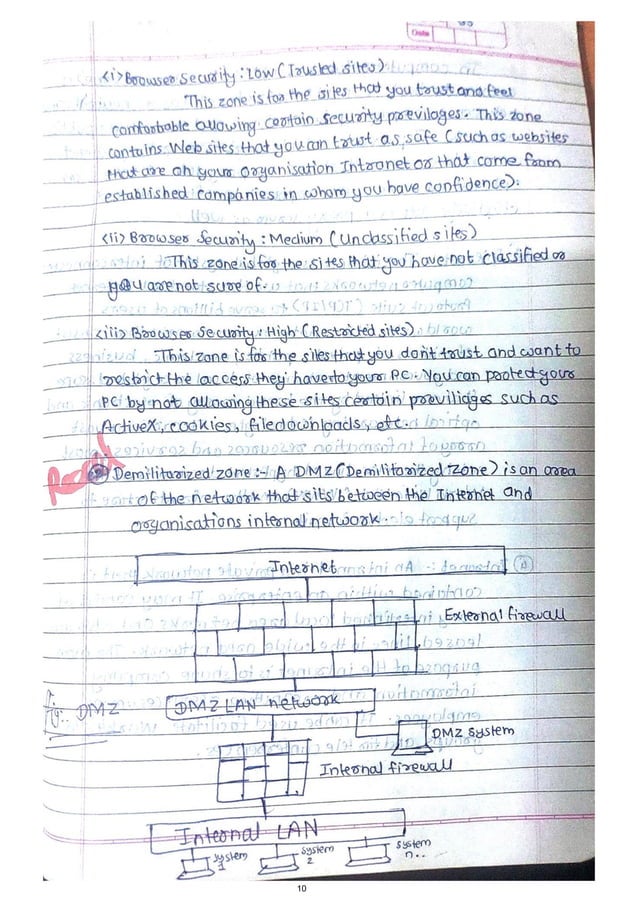 Date
<i> Browser security : Low (Trusted sites)
This zone is for the sites that you trust and feel
comfortable allowing certain security previlages. This zone
contains Web sites that you can trust as safe (such as websites
that are on your organisation Intranet or that come from
established companies in whom you have confidence).
<ii> Browser Security : Medium (Unclassified sites)
This zone is for the sites that you have not classified or
you are not sure of.
<iii> Browser Security : High (Restricted sites)
This zone is for the sites that you don't trust and want to
restrict the access they have to your PC. You can protect your
PC by not allowing these sites certain previliages such as
ActiveX, cookies, file downloads, etc.
Read
Demilitarized zone :- A DMZ (Demilitarized Zone) is an area
of the network that sits between the Internet and
organisations internal network.
Internet
External firewall
Fig:. DMZ
DMZ LAN network
DMZ System
Internal firewall
Internal LAN
System 1
System 2
System n..
10